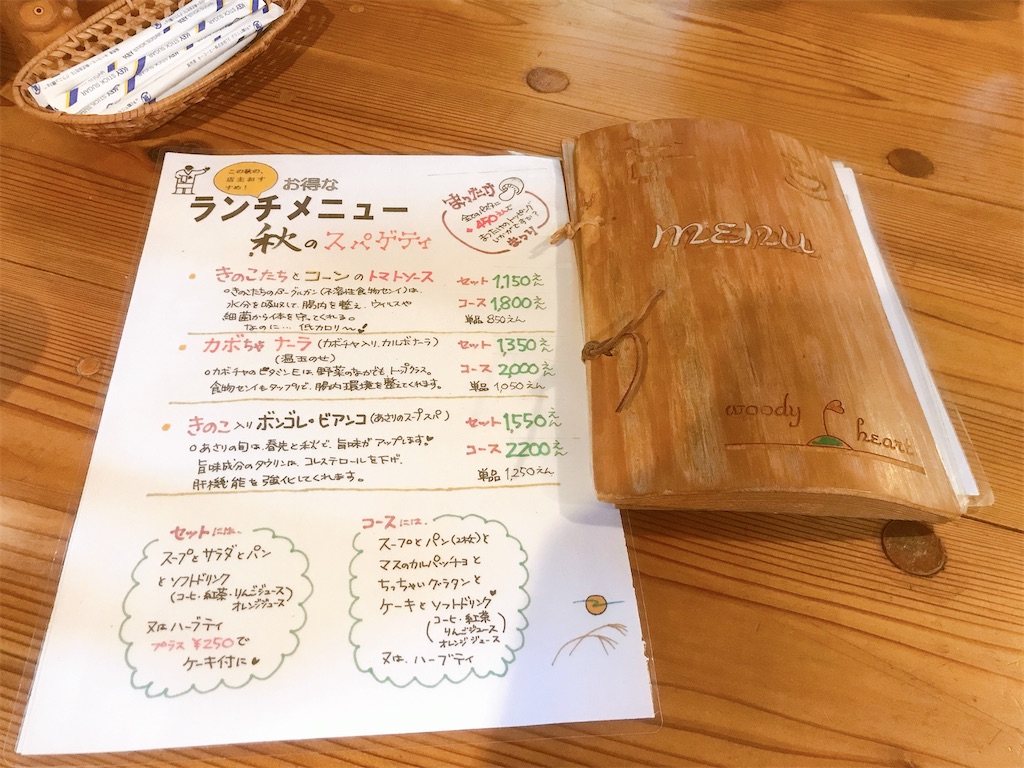 KEY STICK SUGAR
この秋の、
店主おす
すめ!
お得な
ランチメニュー
秋のスパゲティ
まつたけ
全てのパスタに
+450えんで
まつたけのトッピング
いかがですか?
きのこたちとコーンのトマトソース
○きのこたちのβ-グルカン(不溶性食物センイ)は、
水分を吸収して、腸内を整え、ウイルスや
細菌から体を守ってくれる。
なのに… 低カロリ〜!
セット 1,150えん
コース 1,800えん
単品 850えん
カボちゃナーラ(カボチャ入り、カルボナーラ)
(温玉のせ)
○カボチャのビタミンEは、野菜のなかでもトップクラス。
食物センイもタップリで、腸内環境を整えてくれます。
セット 1,350えん
コース 2,000えん
単品 1,050えん
きのこ入りボンゴレ・ビアンコ(あさりのスープスパ)
○あさりの旬は、春先と秋で、旨味がアップします♥
旨味成分のタウリンは、コレステロールを下げ、
肝機能を強化してくれます。
セット 1,550えん
コース 2200えん
単品 1,250えん
セットには、
スープとサラダとパン
とソフトドリンク
(コーヒー・紅茶・りんごジュース
オレンジジュース)
又はハーブティ
プラス ¥250で
ケーキ付に♥
コースには、
スープとパン(2枚)と
マスのカルパッチョと
ちっちゃいグラタンと
ケーキとソフトドリンク
(コーヒー・紅茶
りんごジュース
オレンジジュース)
又は、ハーブティ
MENU
woody
heart